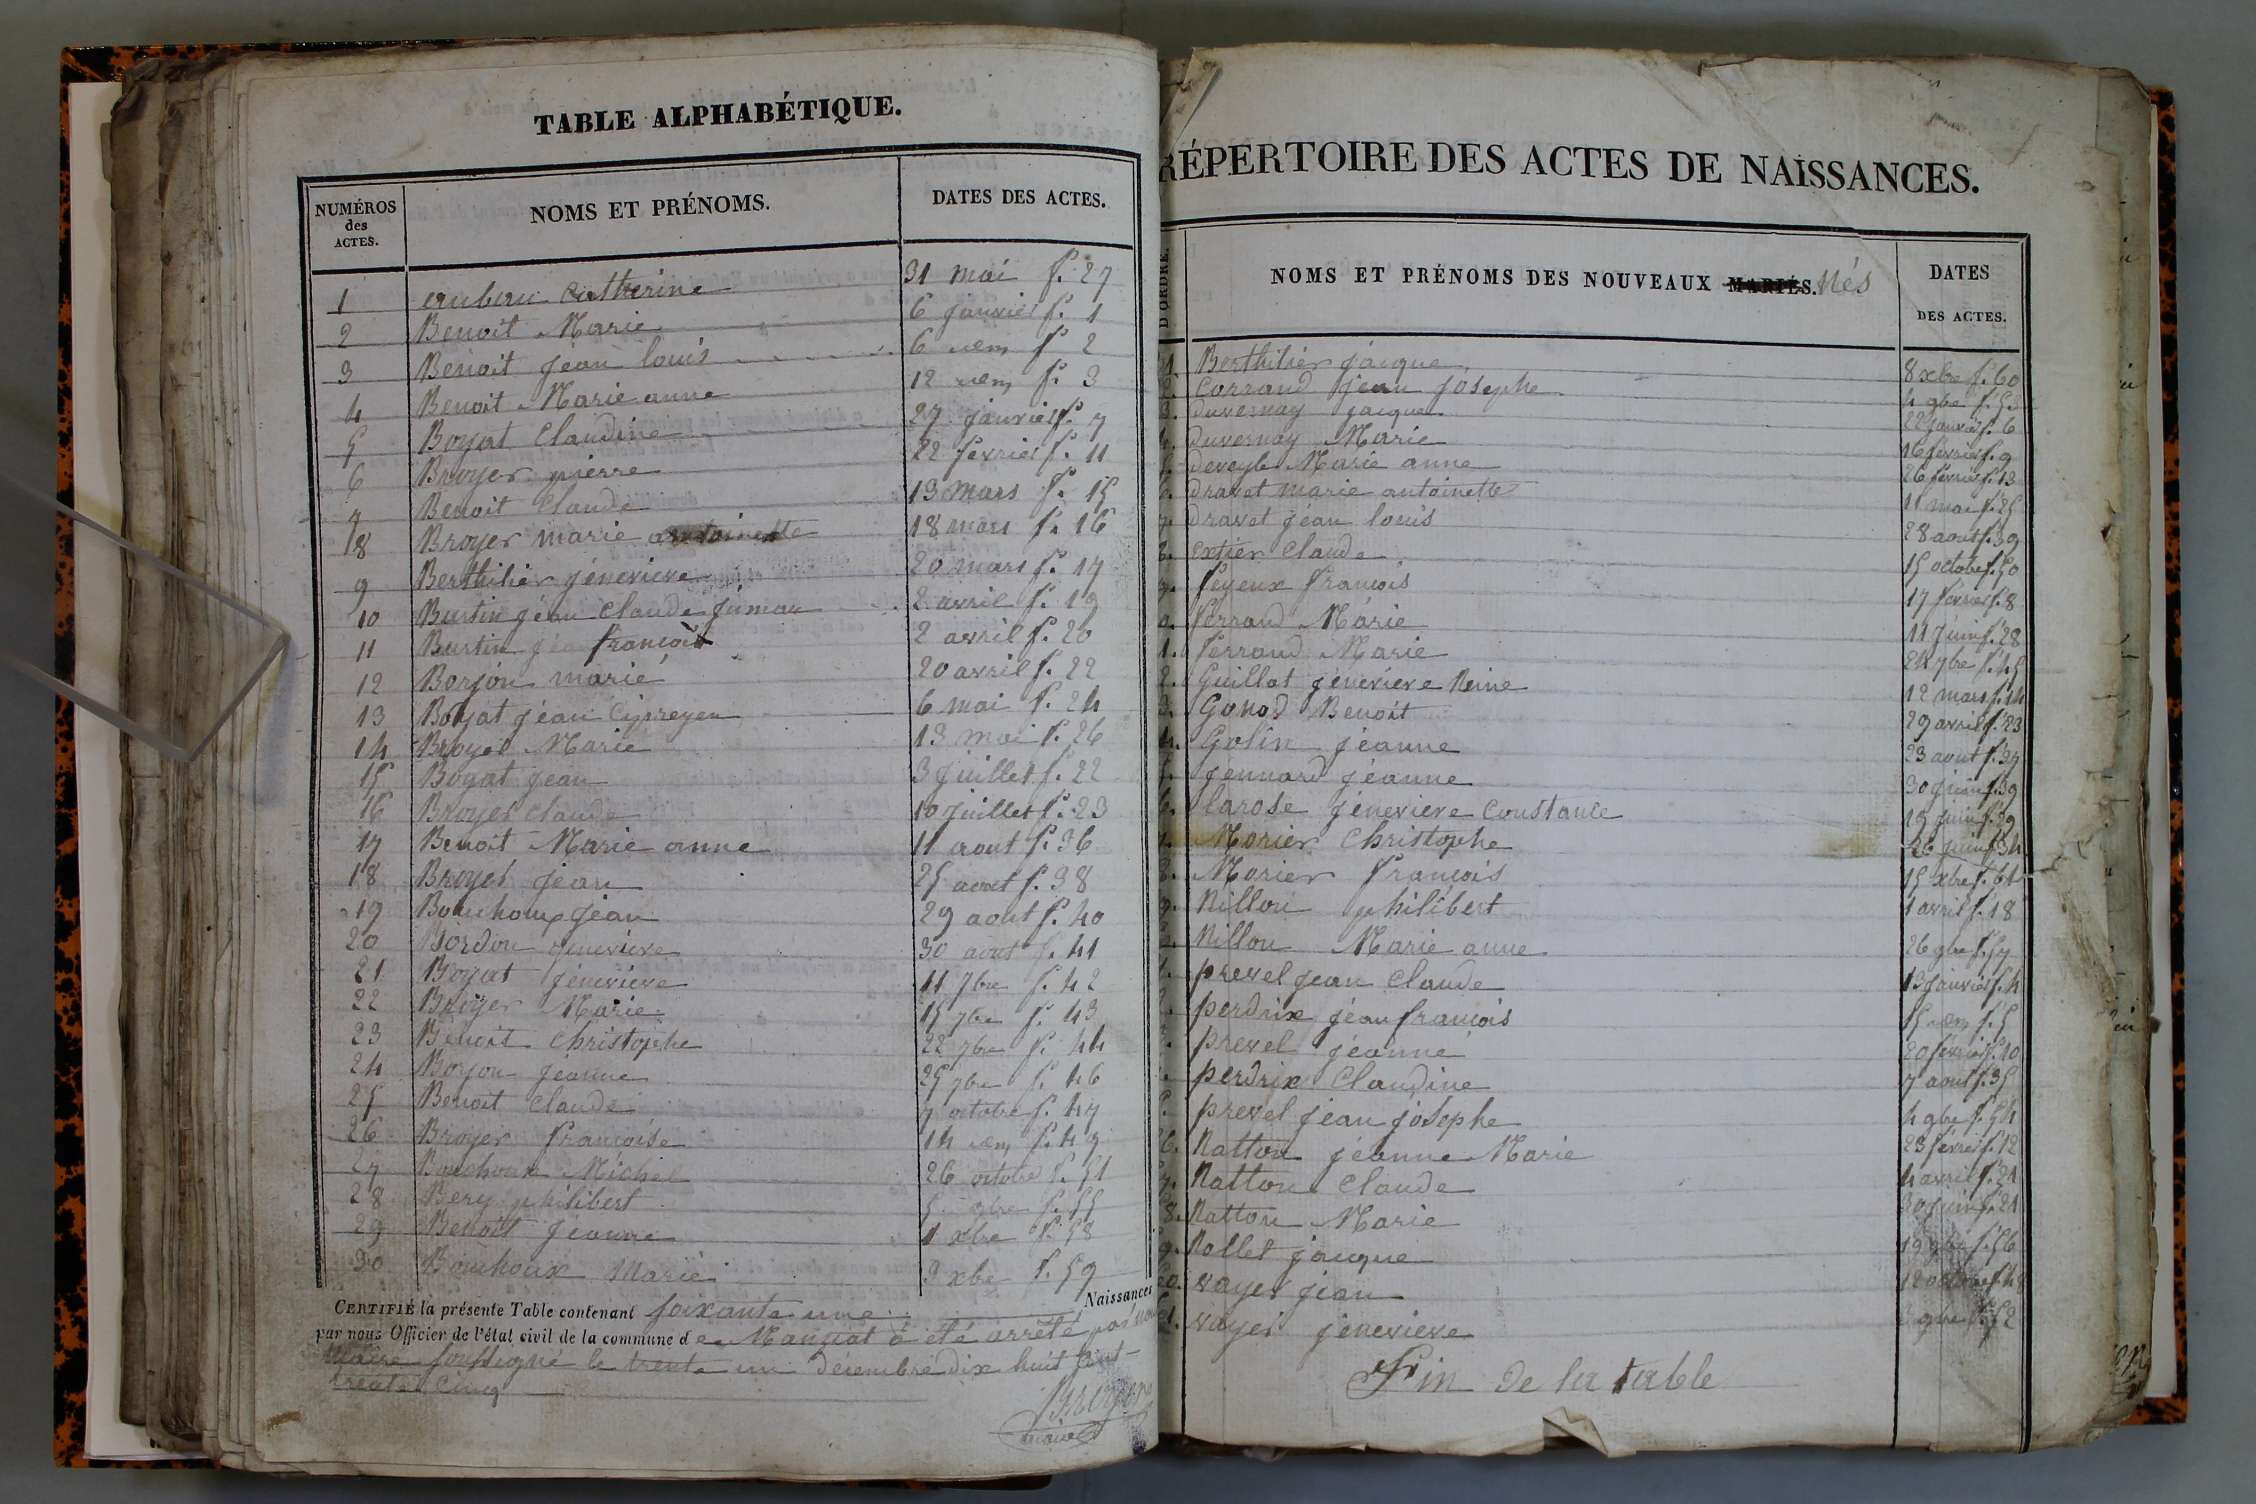 TABLE ALPHABÉTIQUE.
NUMÉROS des ACTES. NOMS ET PRÉNOMS. DATES DES ACTES.
1 Catherine 31 mai f. 27
2 Benoit Marie 6 janvier f. 1
3 Benoit jean louis 6 idem f. 2
4 Benoit Marie anne 12 idem f. 3
5 Boyat Claudine 27 janvier f. 7
6 Broyer pierre 22 fevrier f. 11
7 Benoit Claude 13 mars f. 15
8 Broyer marie antoinette 18 mars f. 16
9 Berthilier jénevieve 20 mars f. 17
10 Burtin jéan Claude 2 avril f. 19
11 Burtin jéan françois 2 avril f. 20
12 Borjon marie 20 avril f. 22
13 Boyat jéan 6 mai f. 24
14 Broyer Marie 13 mai f. 26
15 Boyat jean 3 juillet f. 22
16 Broyer Claude 10 juillet f. 23
17 Benoit Marie anne 11 aout f. 36
18 Broyer jean 25 aout f. 38
19 jéan 29 aout f. 40
20 jenevieve 30 aout f. 41
21 Boyat jénevieve 11 7bre f. 42
22 Broyer Marie 15 7bre f. 43
23 Benoit Christophe 22 7bre f. 44
24 Borjon jeanne 25 7bre f. 46
25 Benoit Claude 7 octobre f. 47
26 Broyer françoise 14 idem f. 49
27 Bouchoux Michel 26 octobre f. 51
28 Bery philibert 5 9bre f. 55
29 Benoit jeanne 1 xbre f. 58
30 Bouchoux Marie 3 xbre f. 59
CERTIFIÉ la présente Table contenant soixante une Naissances
par nous Officier de l'état civil de la commune de Manziat a été arrêté par nous
Maire soussigné le trente un décembre dix huit cent
trente cinq
Broyer
maire
RÉPERTOIRE DES ACTES DE NAISSANCES.
D'ORDRE. NOMS ET PRÉNOMS DES NOUVEAUX MARIÉS. Nés DATES DES ACTES.
1. Berthilier jacque 8 xbre f. 60
2. Corrand jean josephe 4 9bre f. 53
3. Duvernay jacque 22 janvier f. 6
4. Duvernay Marie 16 février f. 9
5. Deveyle Marie anne 26 février f. 13
6. Dravet marie antoinette 11 mai f. 25
7. Dravet jéan louis 28 aout f. 39
8. Extier Claude 15 octobre f. 50
9. Feyeux francois 17 février f. 8
0. ferrand Marie 11 juin f. 28
1. ferrand Marie 24 7bre f. 45
2. Guillot jénevieve Reine 12 mars f. 14
3. Gonod Benoit 29 avril f. 23
4. Golin jéanne 23 aout f. 37
5. jennard jéanne 30 juin f. 39
6. larose jénevieve Constance 19 juin f. 29
7. Morier Christophe 26 juin f. 34
8. Morier francois 15 xbre f. 61
9. Nillon philibert 1 avril f. 18
Nillon Marie anne 26 9bre f. 57
1. prevel jean Claude 13 janvier f. 4
perdrix jéan francois 15 idem f. 5
prevel jéanne 20 février f. 10
perdrix Claudine 7 aout f. 35
prevel jéan josephe 4 9bre f. 54
26. Natton jéanne Marie 23 février f. 12
7. Natton Claude 4 avril f. 21
8. Natton Marie 30 juin f. 21
9. jacque f. 56
0. vayer jean 12 octobre f. 48
1. vayer jénevieve 9bre f. 52
Fin de la table